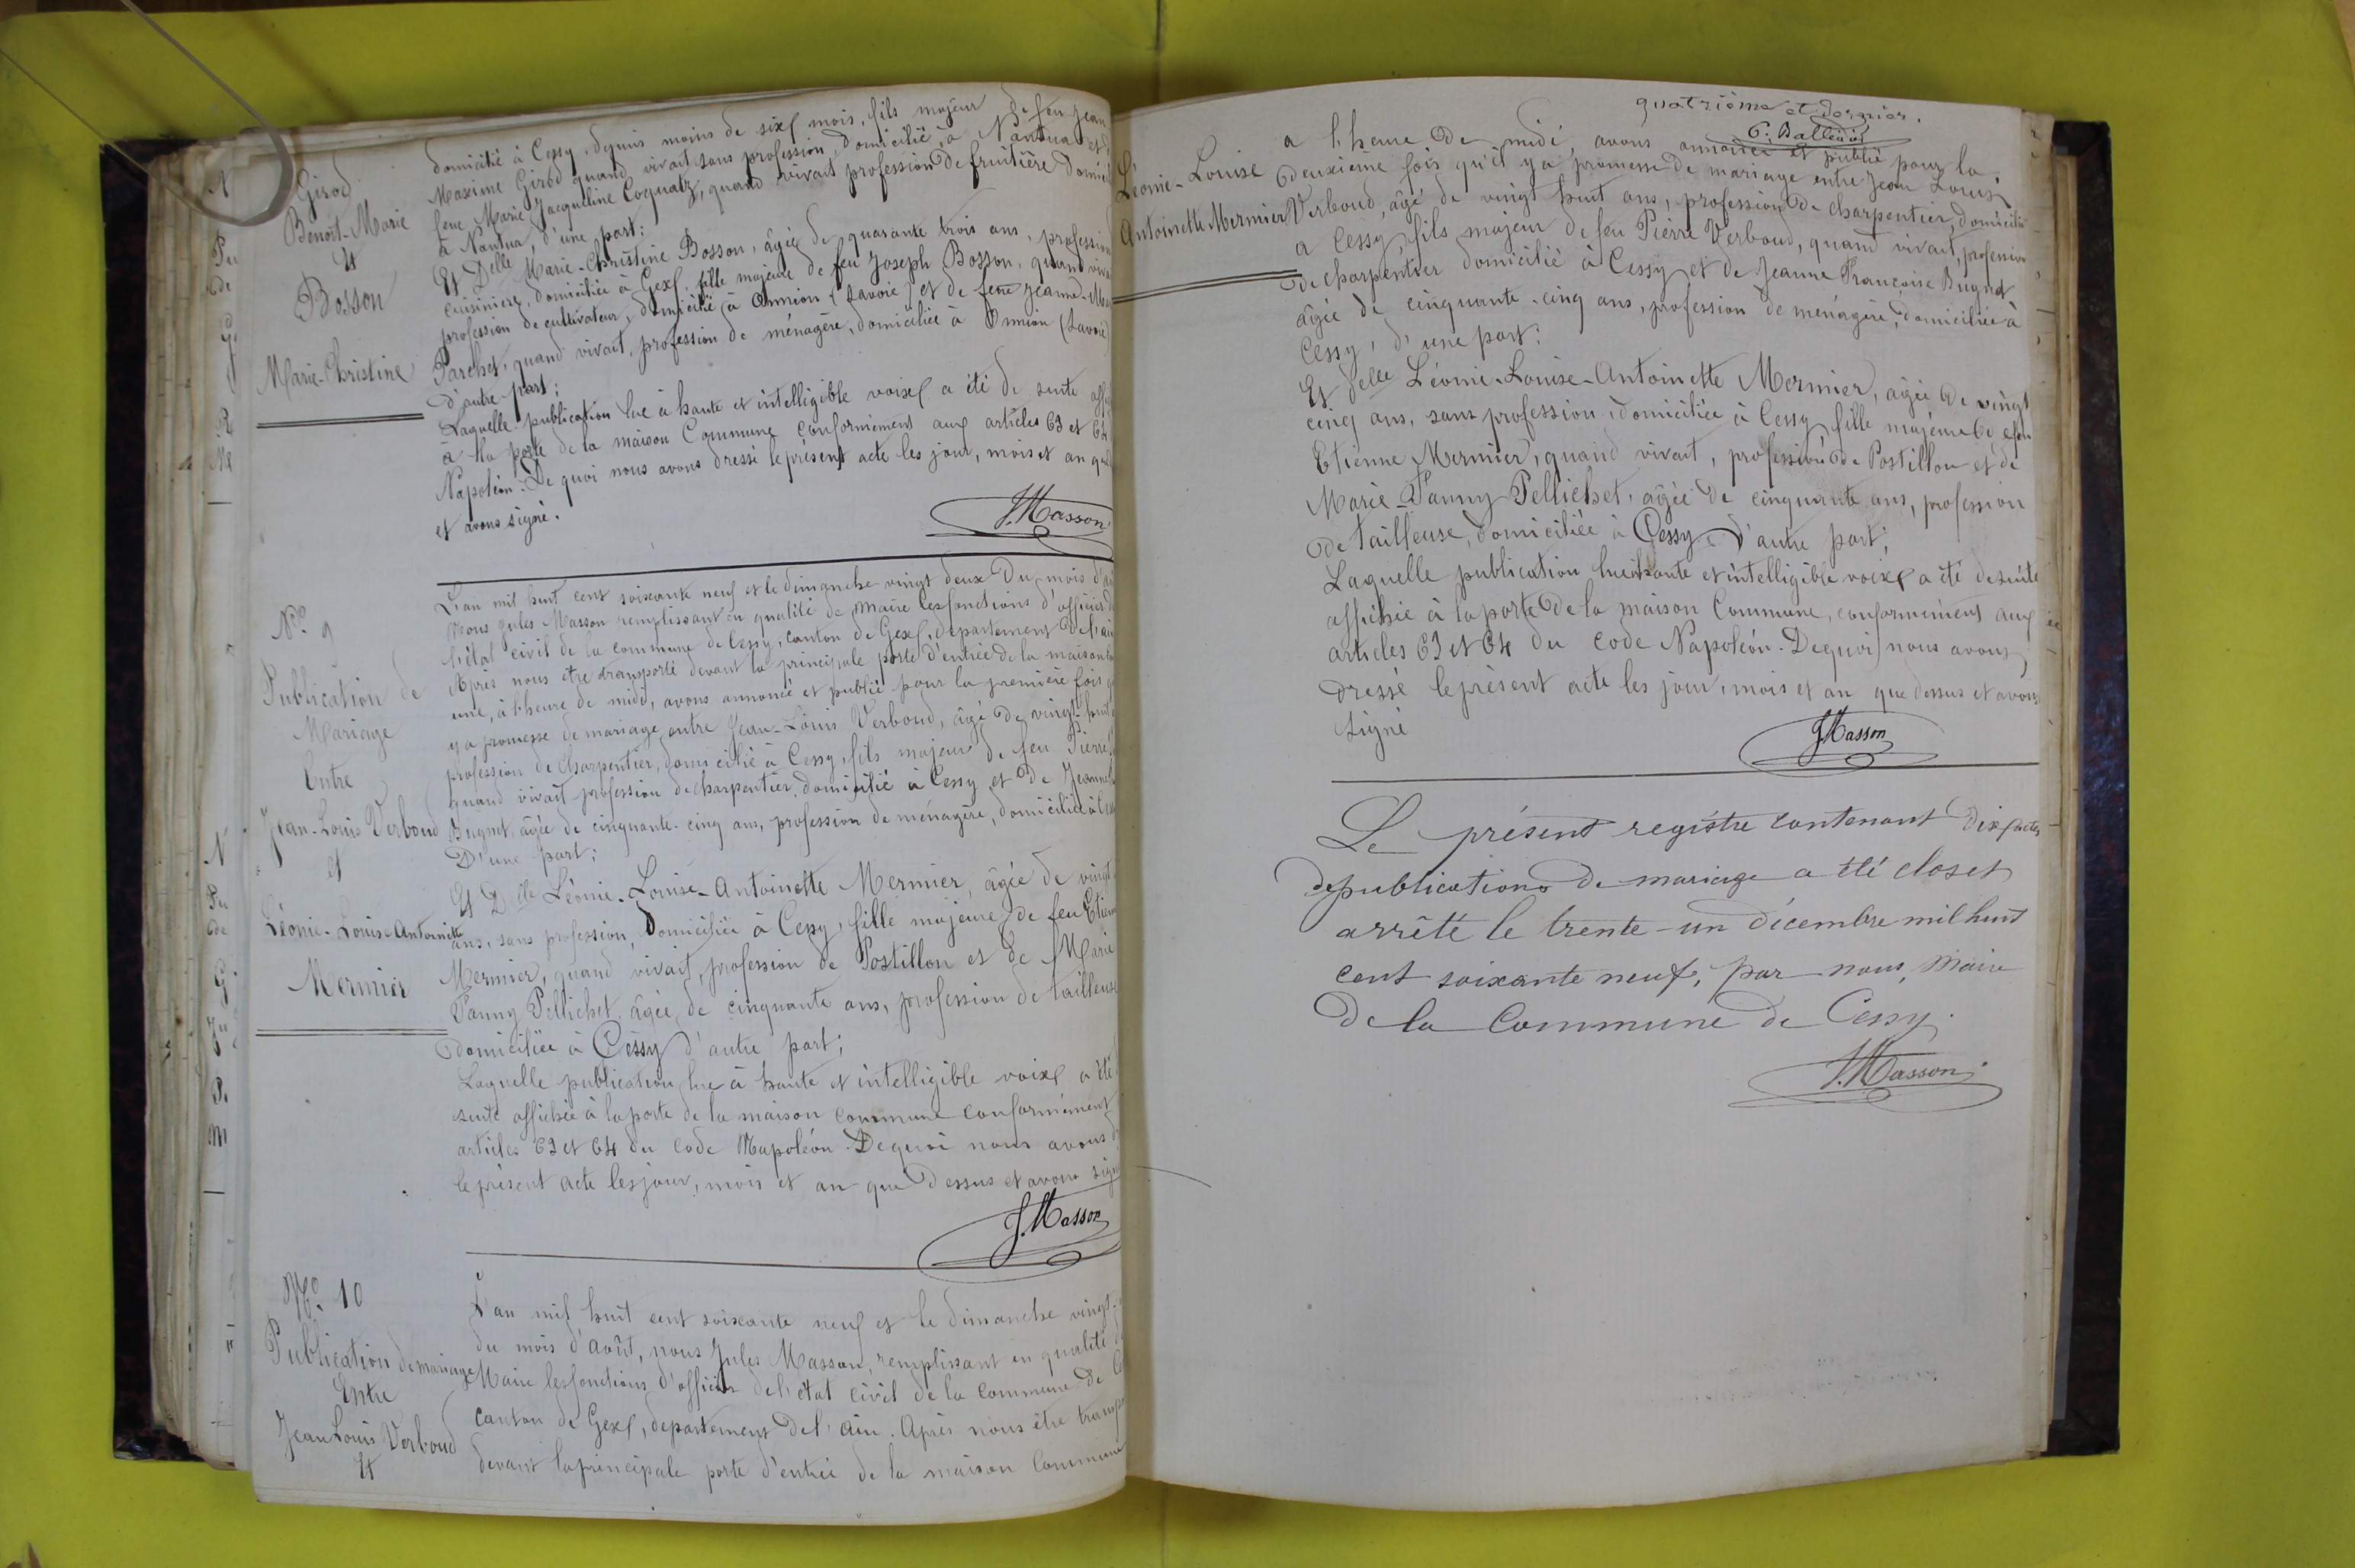 Girod
Benoit-Marie
Et
Bosson
Marie-Christine
domicilié à Cessy, depuis moins de six mois, fils majeur de feu Jean
Maxime Girod quand vivait sans profession, domicilié à Nantua et
feue Marie Jacqueline Coquatz, quand vivait profession de fruitière domici
à Nantua, d'une part:
Et Delle Marie-Christine Bosson, âgée de quarante trois ans, profession
cuisinière, domiciliée à Gex, fille majeure de feu Joseph Bosson, quand viva
profession de cultivateur, domicilié à Onnion (Savoie) et de feue Jeanne-Ma
Parchet, quand vivait, profession de ménagère, domiciliée à Onnion (Savoie)
d'autre part;
Laquelle publication lue à haute et intelligible voix a été de suite affi
à la porte de la maison Commune conformément aux articles 63 et 64
Napoléon. De quoi nous avons dressé le présent acte les jour, mois et an que
et avons signé.
J. Masson
No. 9
Publication de
Mariage
Entre
Jean-Louis Verboud
et
Léonie-Louise Antoinette
Mermier
L'an mil huit cent soixante neuf et le dimanche vingt deux du mois d'ao
Nous Jules Masson remplissant en qualité de Maire les fonctions d'officier de
l'état civil de la commune de Cessy, canton de Gex, département de l'ain
Après nous être transporté devant la principale porte d'entrée de la maison
une, à l'heure de midi, avons annoncé et publié pour la première fois q
y a promesse de mariage entre Jean-Louis Verboud, âgé de vingt-huit
profession de charpentier, domicilié à Cessy, fils majeur de feu Pierre
quand vivait profession de charpentier, domicilié à Cessy et de Jeanne
Bugnet, âgée de cinquante-cinq ans, profession de ménagère, domiciliée à
D'une part;
Et Delle Léonie-Louise-Antoinette Mermier, âgée de vingt
ans, sans profession, domiciliée à Cessy, fille majeure de feu Etienne
Mermier, quand vivait, profession de Postillon et de Marie
Fanny Pellichet, âgée de cinquante ans, profession de tailleuse
domiciliée à Cessy d'autre part;
Laquelle publication lue à haute et intelligible voix a été
suite affichée à la porte de la maison commune conformément
articles 63 et 64 du Code Napoléon. De quoi nous avons d
le présent acte les jour, mois et an que dessus et avons signé
J. Masson
No. 10
Publication de mariage
Entre
Jean Louis Verboud
Et
L'an mil huit cent soixante neuf et le dimanche vingt-
du mois d'août, nous Jules Masson, remplissant en qualité d
Maire les fonctions d'officier de l'état civil de la commune de Ce
canton de Gex, département de l'ain. Après nous être transpo
devant la principale porte d'entrée de la maison Commune
quatrième et dernier.
Léonie-Louise
Antoinette Mermier
a l'heure de midi, avons annoncé et publié pour la
deuxième fois qu'il y a promesse de mariage entre Jean Louis
Verboud, âgé de vingt huit ans, profession de charpentier, domicilié
a Cessy, fils majeur de feu Pierre Verboud, quand vivait, profession
de charpentier domicilié à Cessy et de Jeanne Françoise Bugnet
âgée de cinquante-cinq ans, profession de ménagère, domiciliée à
Cessy, d'une part:
Et delle Léonie-Louise-Antoinette Mermier, âgée de vingt
cinq ans, sans profession, domiciliée à Cessy, fille majeure de feu
Etienne Mermier, quand vivait, profession de Postillon et de
Marie-Fanny Pellichet, âgée de cinquante ans, profession
de tailleuse, domiciliée à Cessy, d'autre part;
Laquelle publication lue à haute et intelligible voix a été de suite
affichée à la porte de la maison Commune, conformément aux
articles 63 et 64 du Code Napoléon. De quoi nous avons
dressé le présent acte les jour, mois et an que dessus et avons
signé
J. Masson
Le présent registre contenant dix actes
de publications de mariage a été clos et
arrêté le trente-un décembre mil huit
cent soixante neuf, par nous, Maire
De la Commune de Cessy.
J. Masson